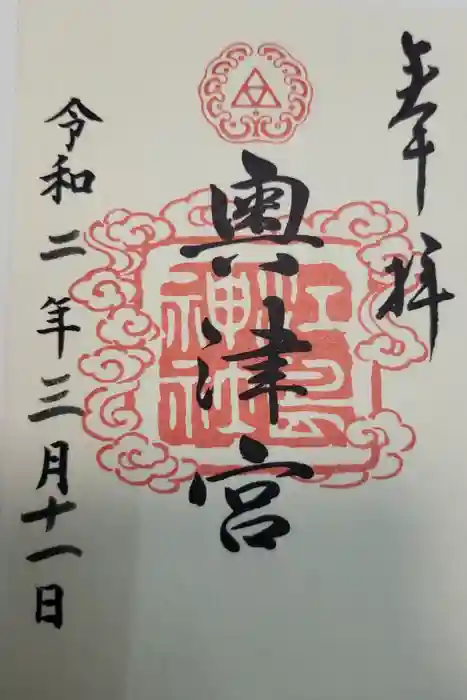 奉拝
奥津宮
江島
神社
令和二年三月十一日